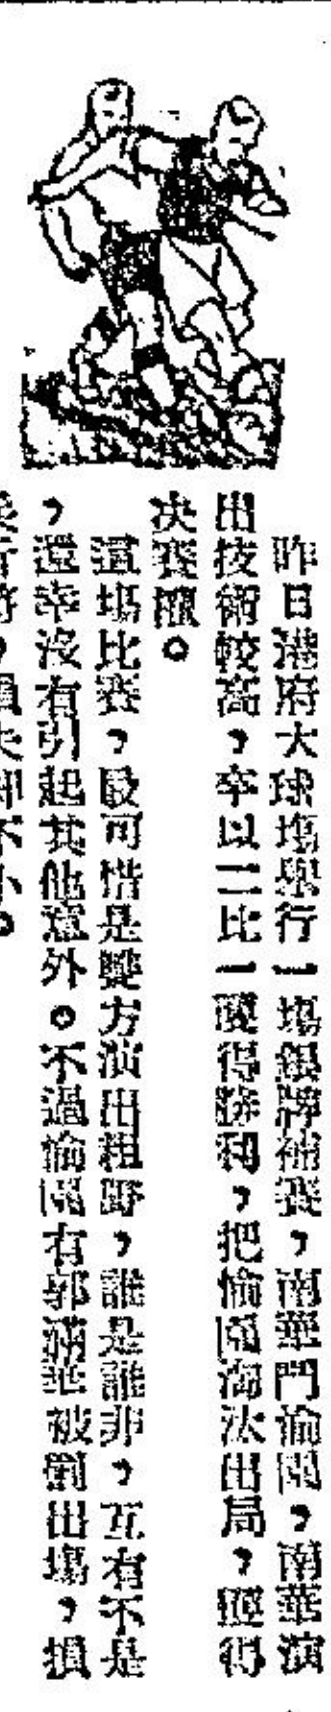 昨日港府大球塲舉行一塲銀牌補賽，南華鬥愉園，南華演
出技術較高，卒以二比一獲得勝利，把愉園淘汰出局，獲得
決賽權。
這塲比賽，最可惜是雙方演出粗野，誰是誰非，互有不是
，還幸沒有引起其他意外。不過愉園有郭滿華被劉出塲，損
兵折將，損失却不小。